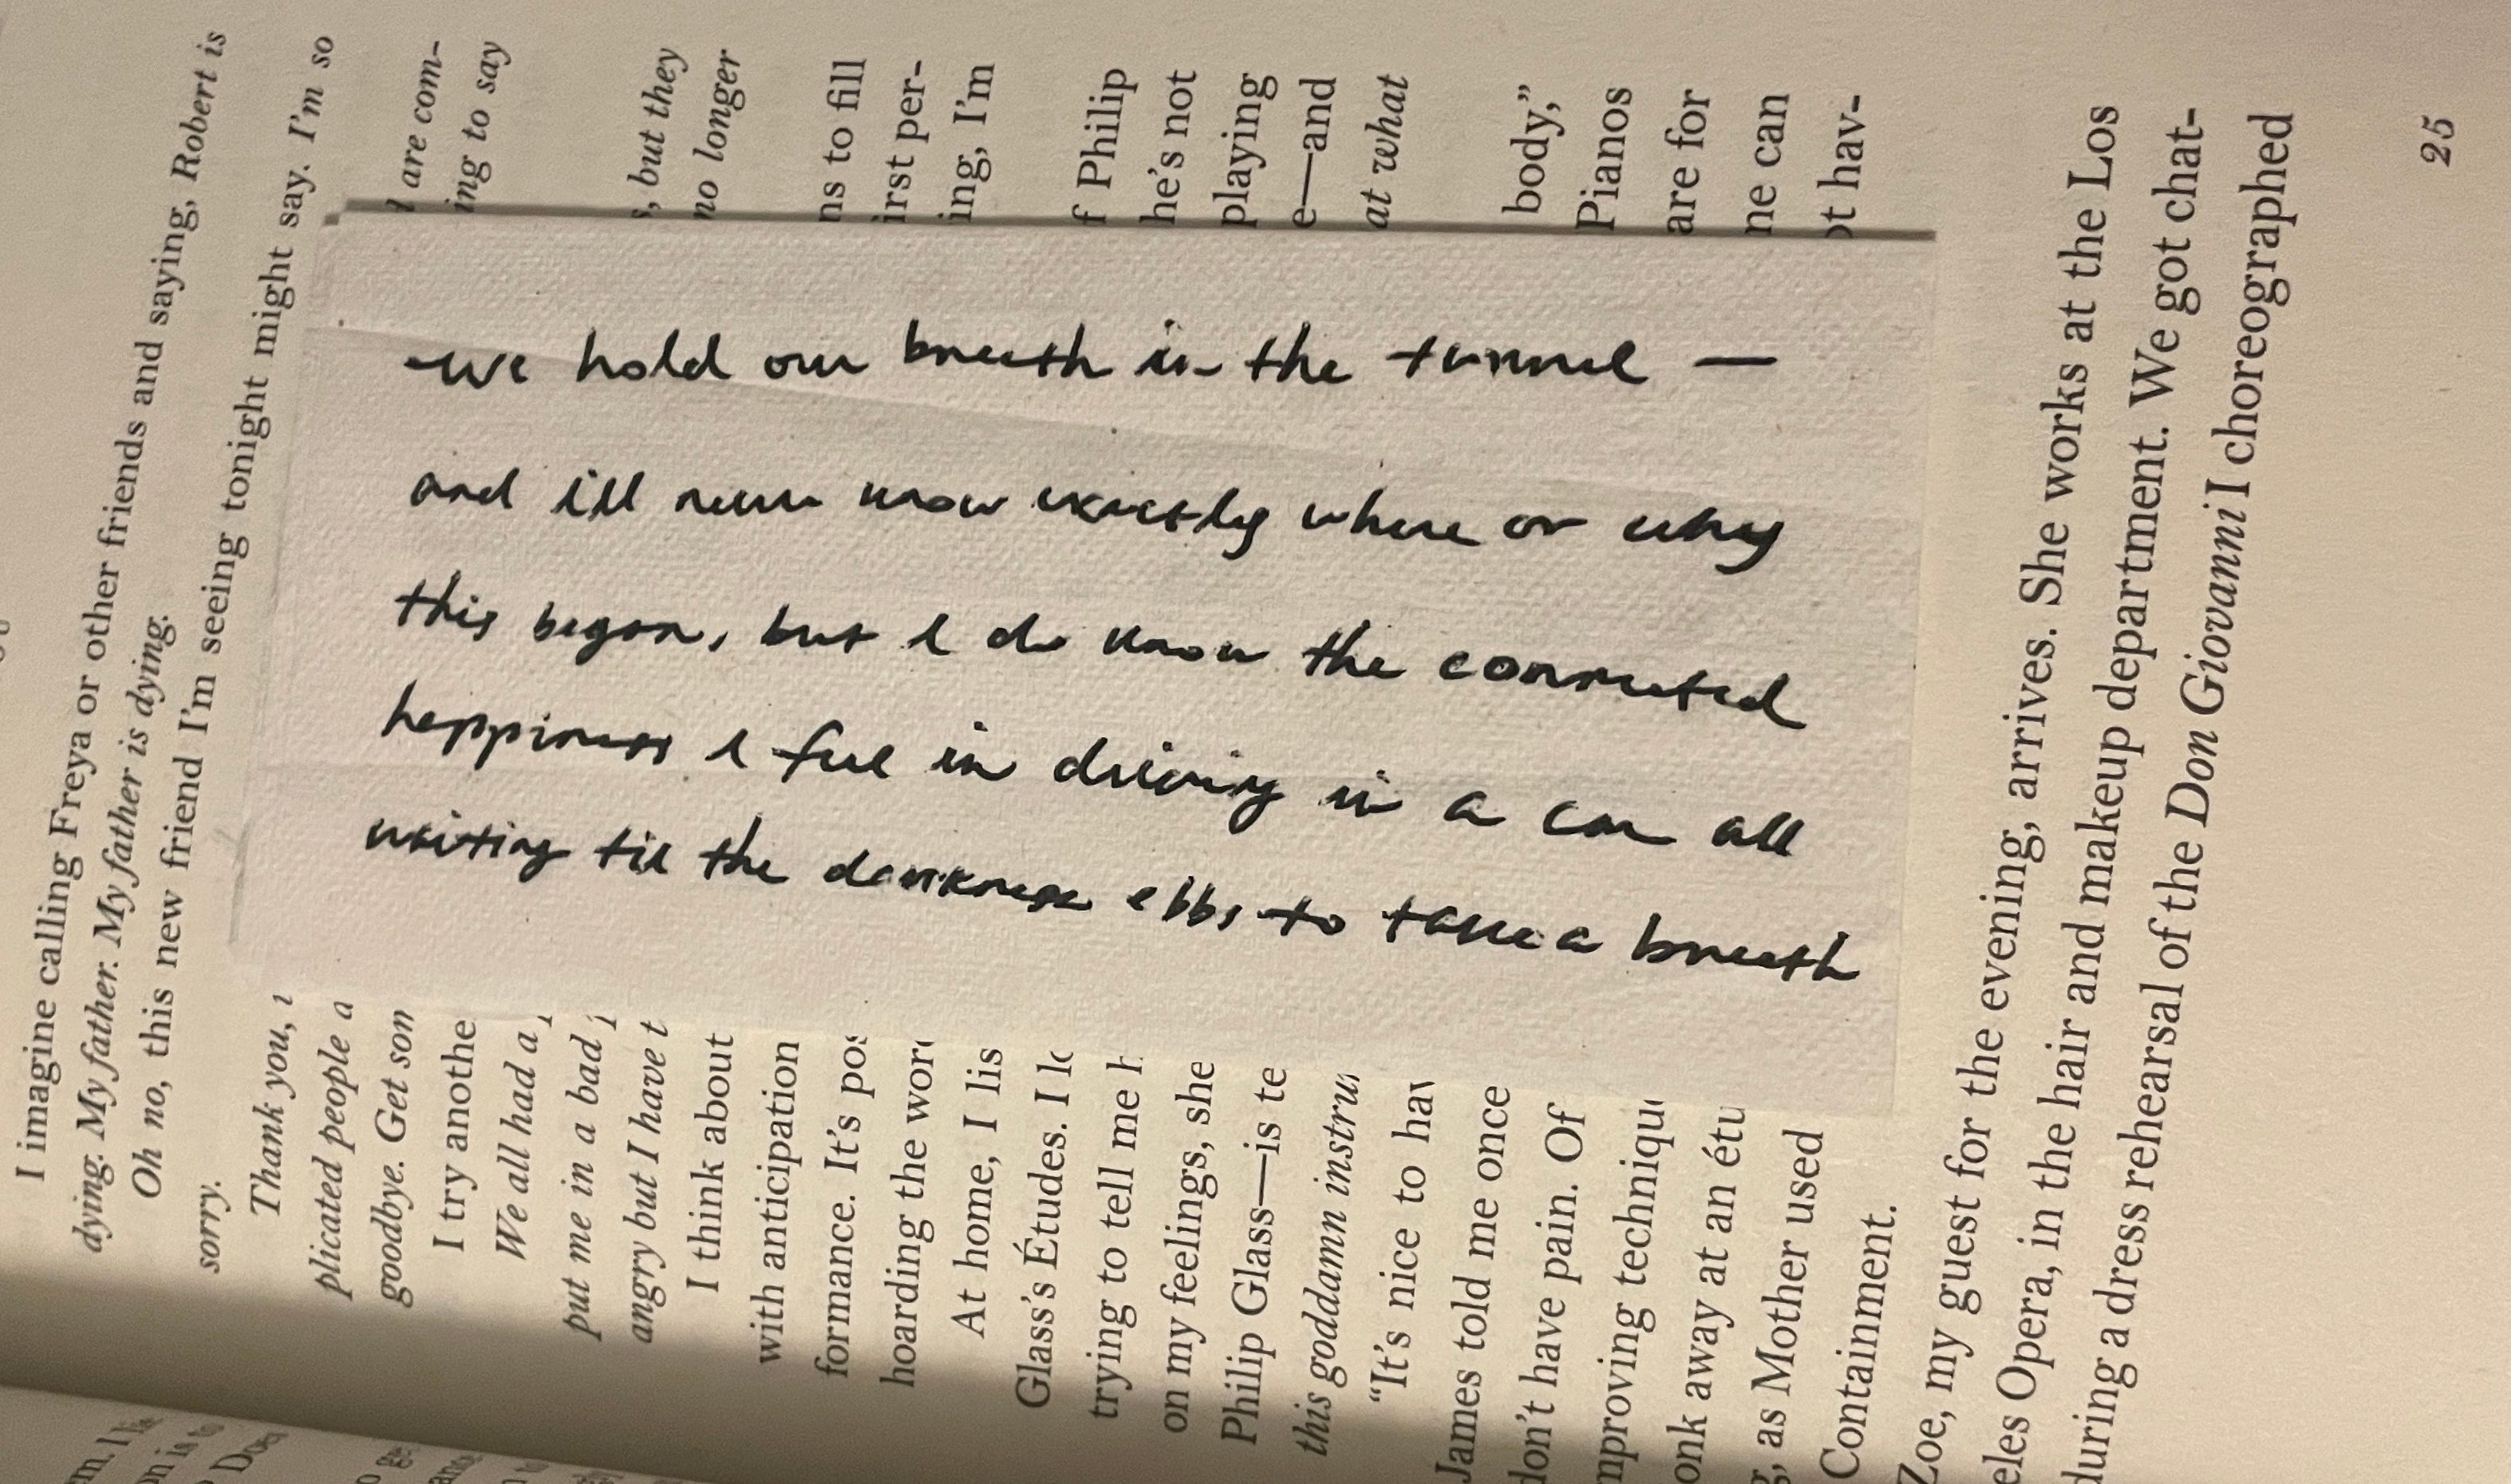 we hold our breath in the tunnel —
and ill never know exactly where or why
this began, but I do know the connected
happiness I feel in driving in a car all
waiting til the darkness ebbs to take a breath
I imagine calling Freya or other friends and saying, Robert is
dying. My father. My father is dying.
Oh no, this new friend I'm seeing tonight might say. I'm so
sorry.
Thank you, are com-
plicated people a ing to say
goodbye. Get son
I try anothe , but they
We all had a no longer
put me in a bad
angry but I have t ns to fill
I think about irst per-
with anticipation ing, I'm
formance. It's pos
hoarding the wor f Philip
At home, I lis he's not
Glass's Études. I playing
trying to tell me e—and
on my feelings, she at what
Philip Glass—is te
this goddamn instru body,”
“It's nice to hav Pianos
James told me once are for
don't have pain. Of ne can
mproving techniqu ot hav-
onk away at an étu
, as Mother used
Containment.
Zoe, my guest for the evening, arrives. She works at the Los
eles Opera, in the hair and makeup department. We got chat-
during a dress rehearsal of the Don Giovanni I choreographed
25